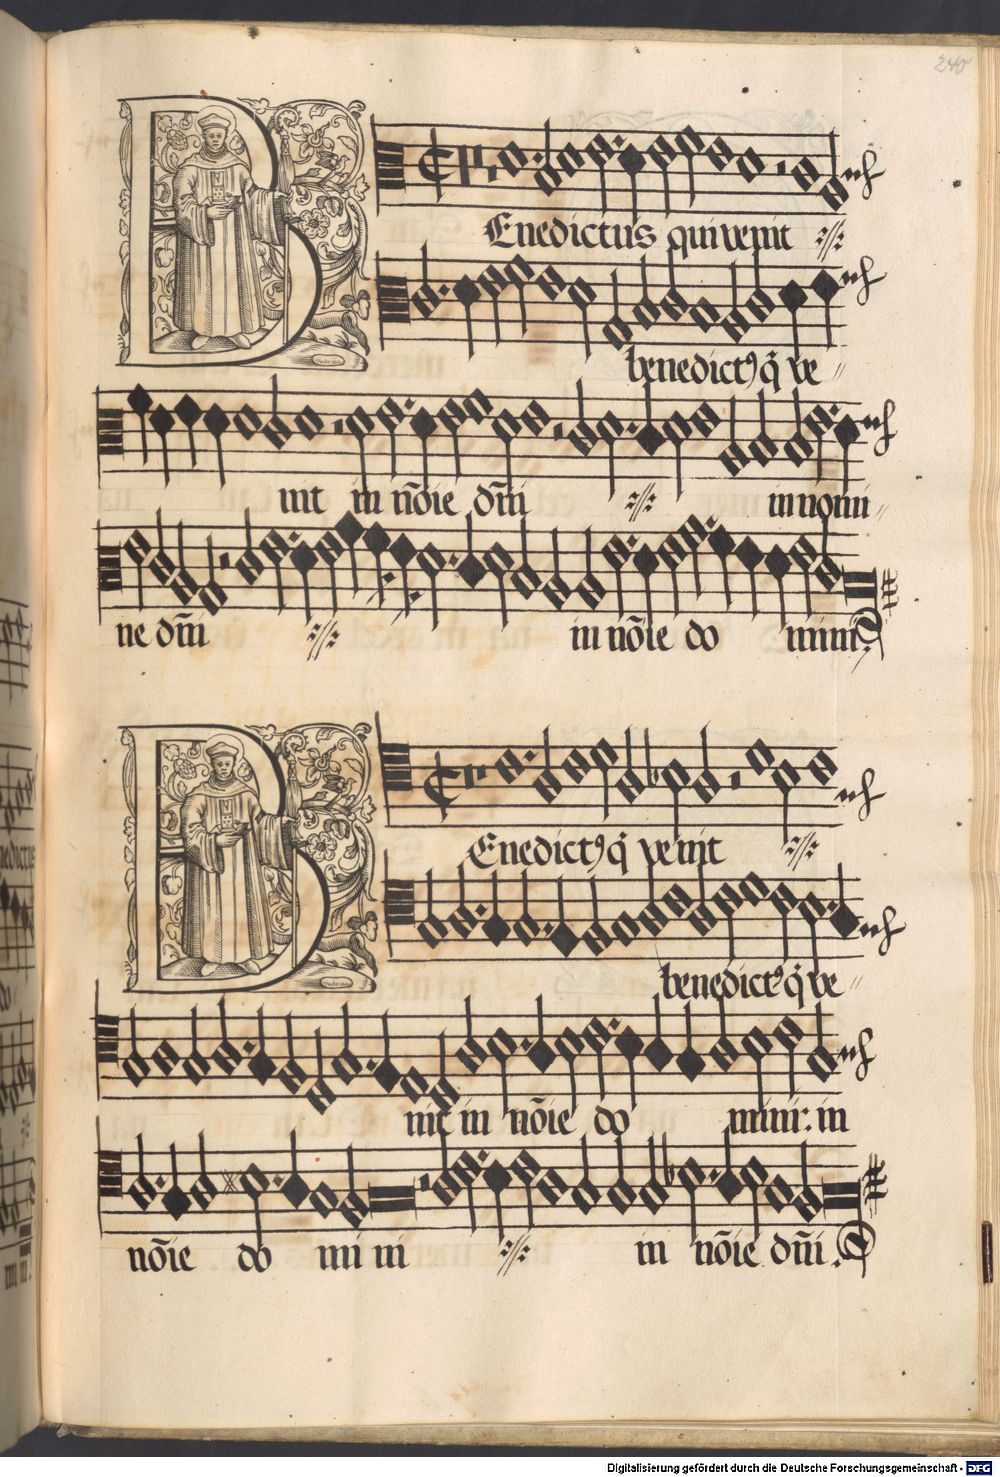 240
BEnedictus qui venit
benedictꝰ q̃ ve
nit in nõie dñi in nomi
ne dñi in nõie do mini.
BEnedictꝰ q̃ venit
benedictꝰ q̃ ve
nit in nõie do mini: in
nõie do mi ni in nõie dñi.
Digitalisierung gefördert durch die Deutsche Forschungsgemeinschaft - DFG